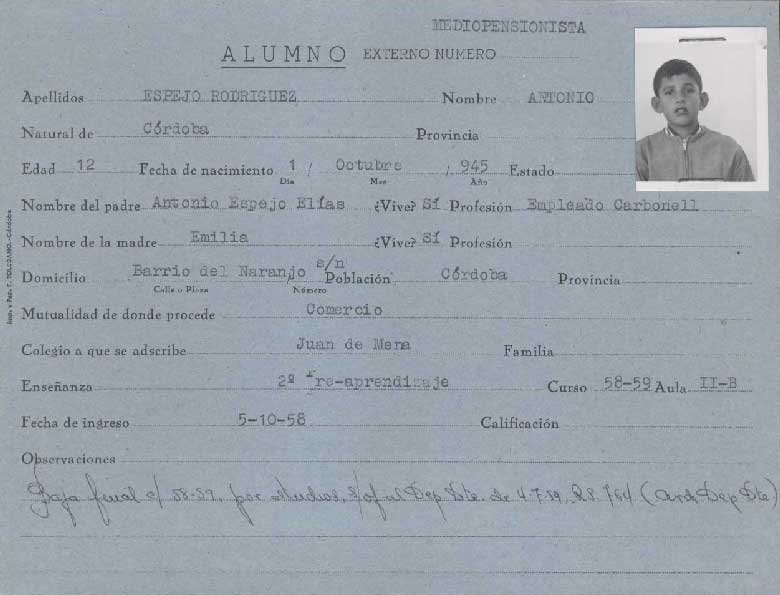 MEDIOPENSIONISTA
ALUMNO EXTERNO NUMERO
Apellidos ESPEJO RODRIGUEZ Nombre ANTONIO
Natural de Córdoba Provincia
Edad 12 Fecha de nacimiento 1 / Octubre / 945 Estado
Día Mes Año
Nombre del padre Antonio Espejo Elías ¿Vive? Sí Profesión Empleado Carbonell
Nombre de la madre Emilia ¿Vive? Sí Profesión
Domicilio Barrio del Naranjo s/n Población Córdoba Provincia
Calle o Plaza Número
Mutualidad de donde procede Comercio
Colegio a que se adscribe Juan de Mena Familia
Enseñanza 2º Pre-aprendizaje Curso 58-59 Aula II-B
Fecha de ingreso 5-10-58 Calificación
Observaciones
Baja final c/ 58-59, por estudios, s/of al Dep. Dte. de 4-7-59, R.S. 764 (Arch. Dep Dte)
Imp. y Pap. F. TOLEDANO.-Córdoba